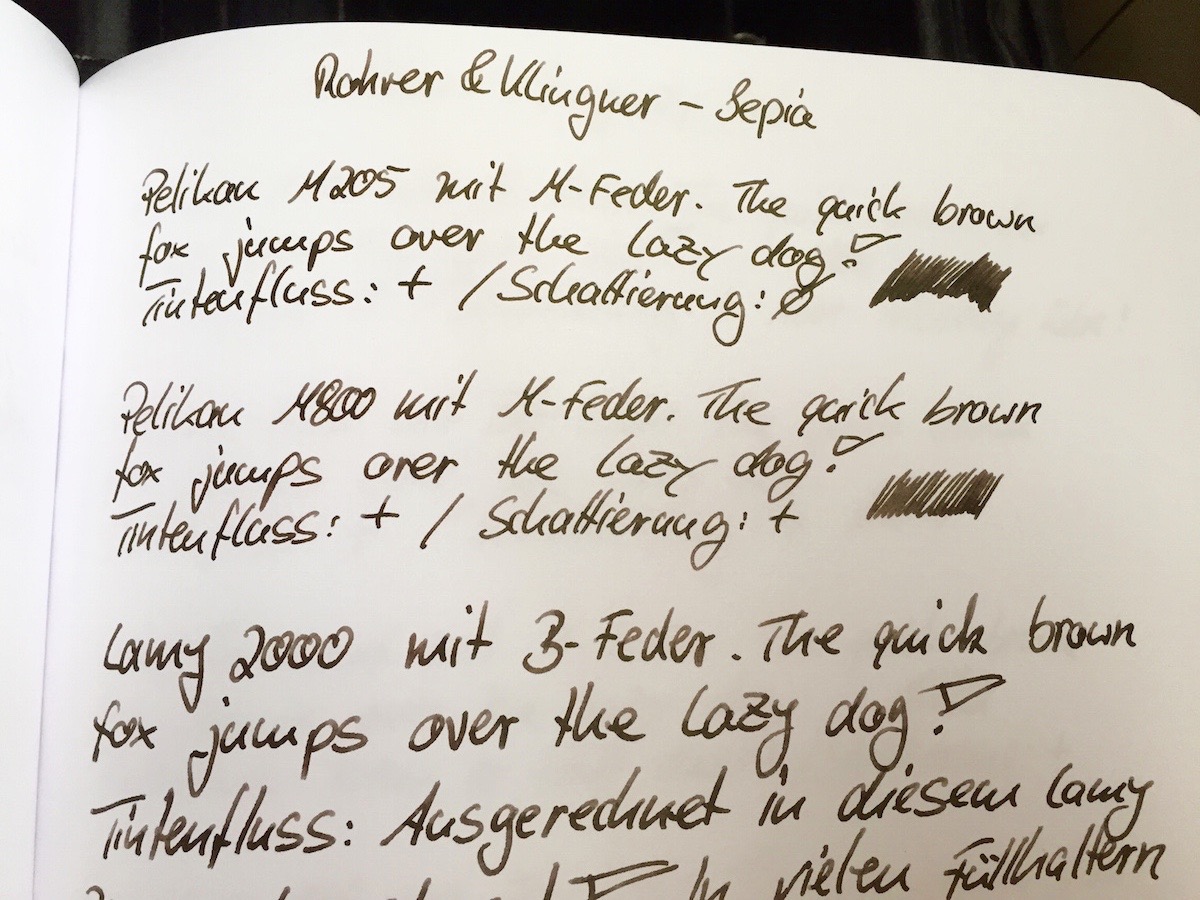 Rohrer & Klingner – Sepia
Pelikan M205 mit M-Feder. The quick brown
fox jumps over the lazy dog!
Tintenfluss: + / Schattierung: Ø
Pelikan M800 mit M-Feder. The quick brown
fox jumps over the lazy dog!
Tintenfluss: + / Schattierung: +
Lamy 2000 mit B-Feder. The quick brown
fox jumps over the lazy dog!
Tintenfluss: Ausgerechnet in diesem Lamy
! In vielen Füllhaltern